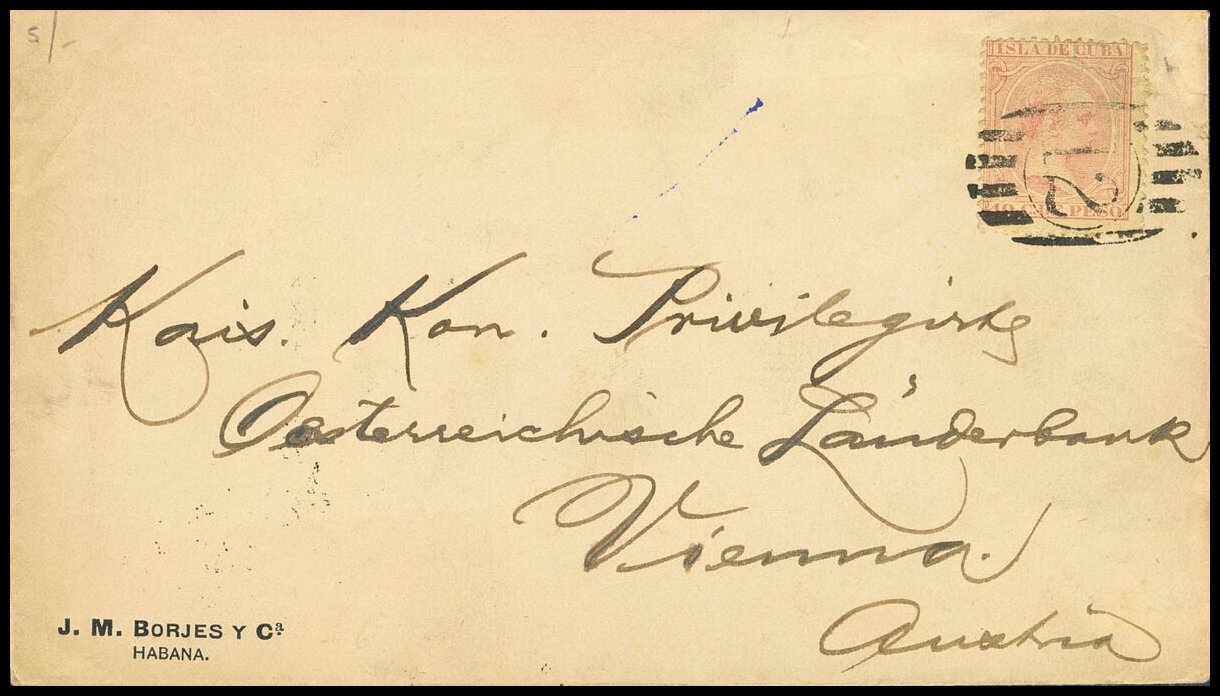 5/-
ISLA DE CUBA
10 C. DE PESO
21
Kais. Kön. Privilegirte
Oesterreichische Länderbank
Vienna.
Austria
J. M. BORJES Y Cª
HABANA.